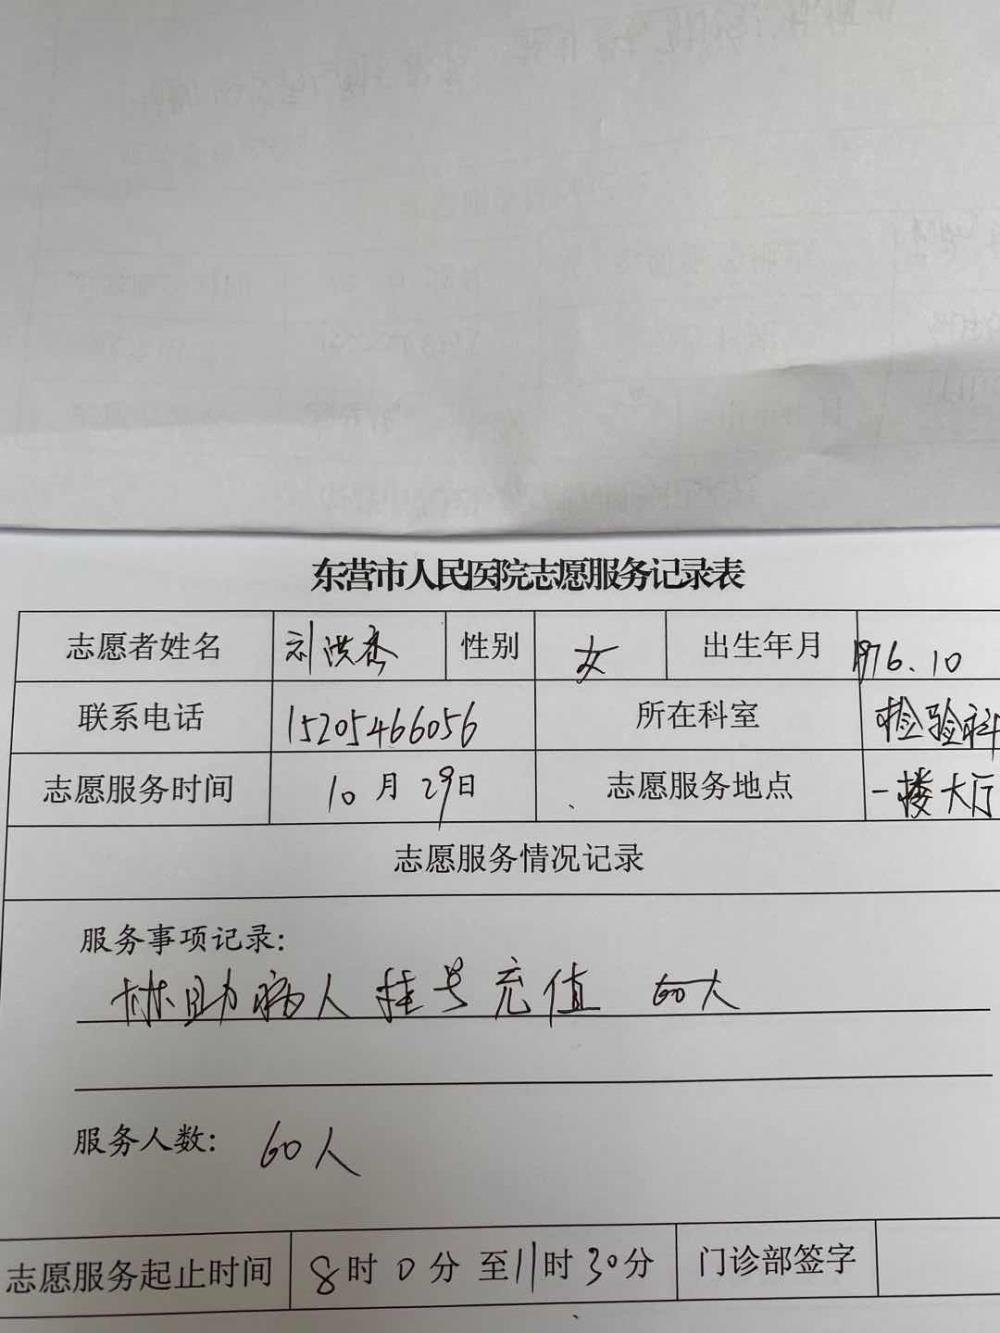 东营市人民医院志愿服务记录表
志愿者姓名 刘洪杰 性别 女 出生年月 1976.10
联系电话 15205466056 所在科室 检验科
志愿服务时间 10月29日 志愿服务地点 一楼大厅
志愿服务情况记录
服务事项记录:
协助病人挂号充值 60人
服务人数: 60人
志愿服务起止时间 8时0分至11时30分 门诊部签字